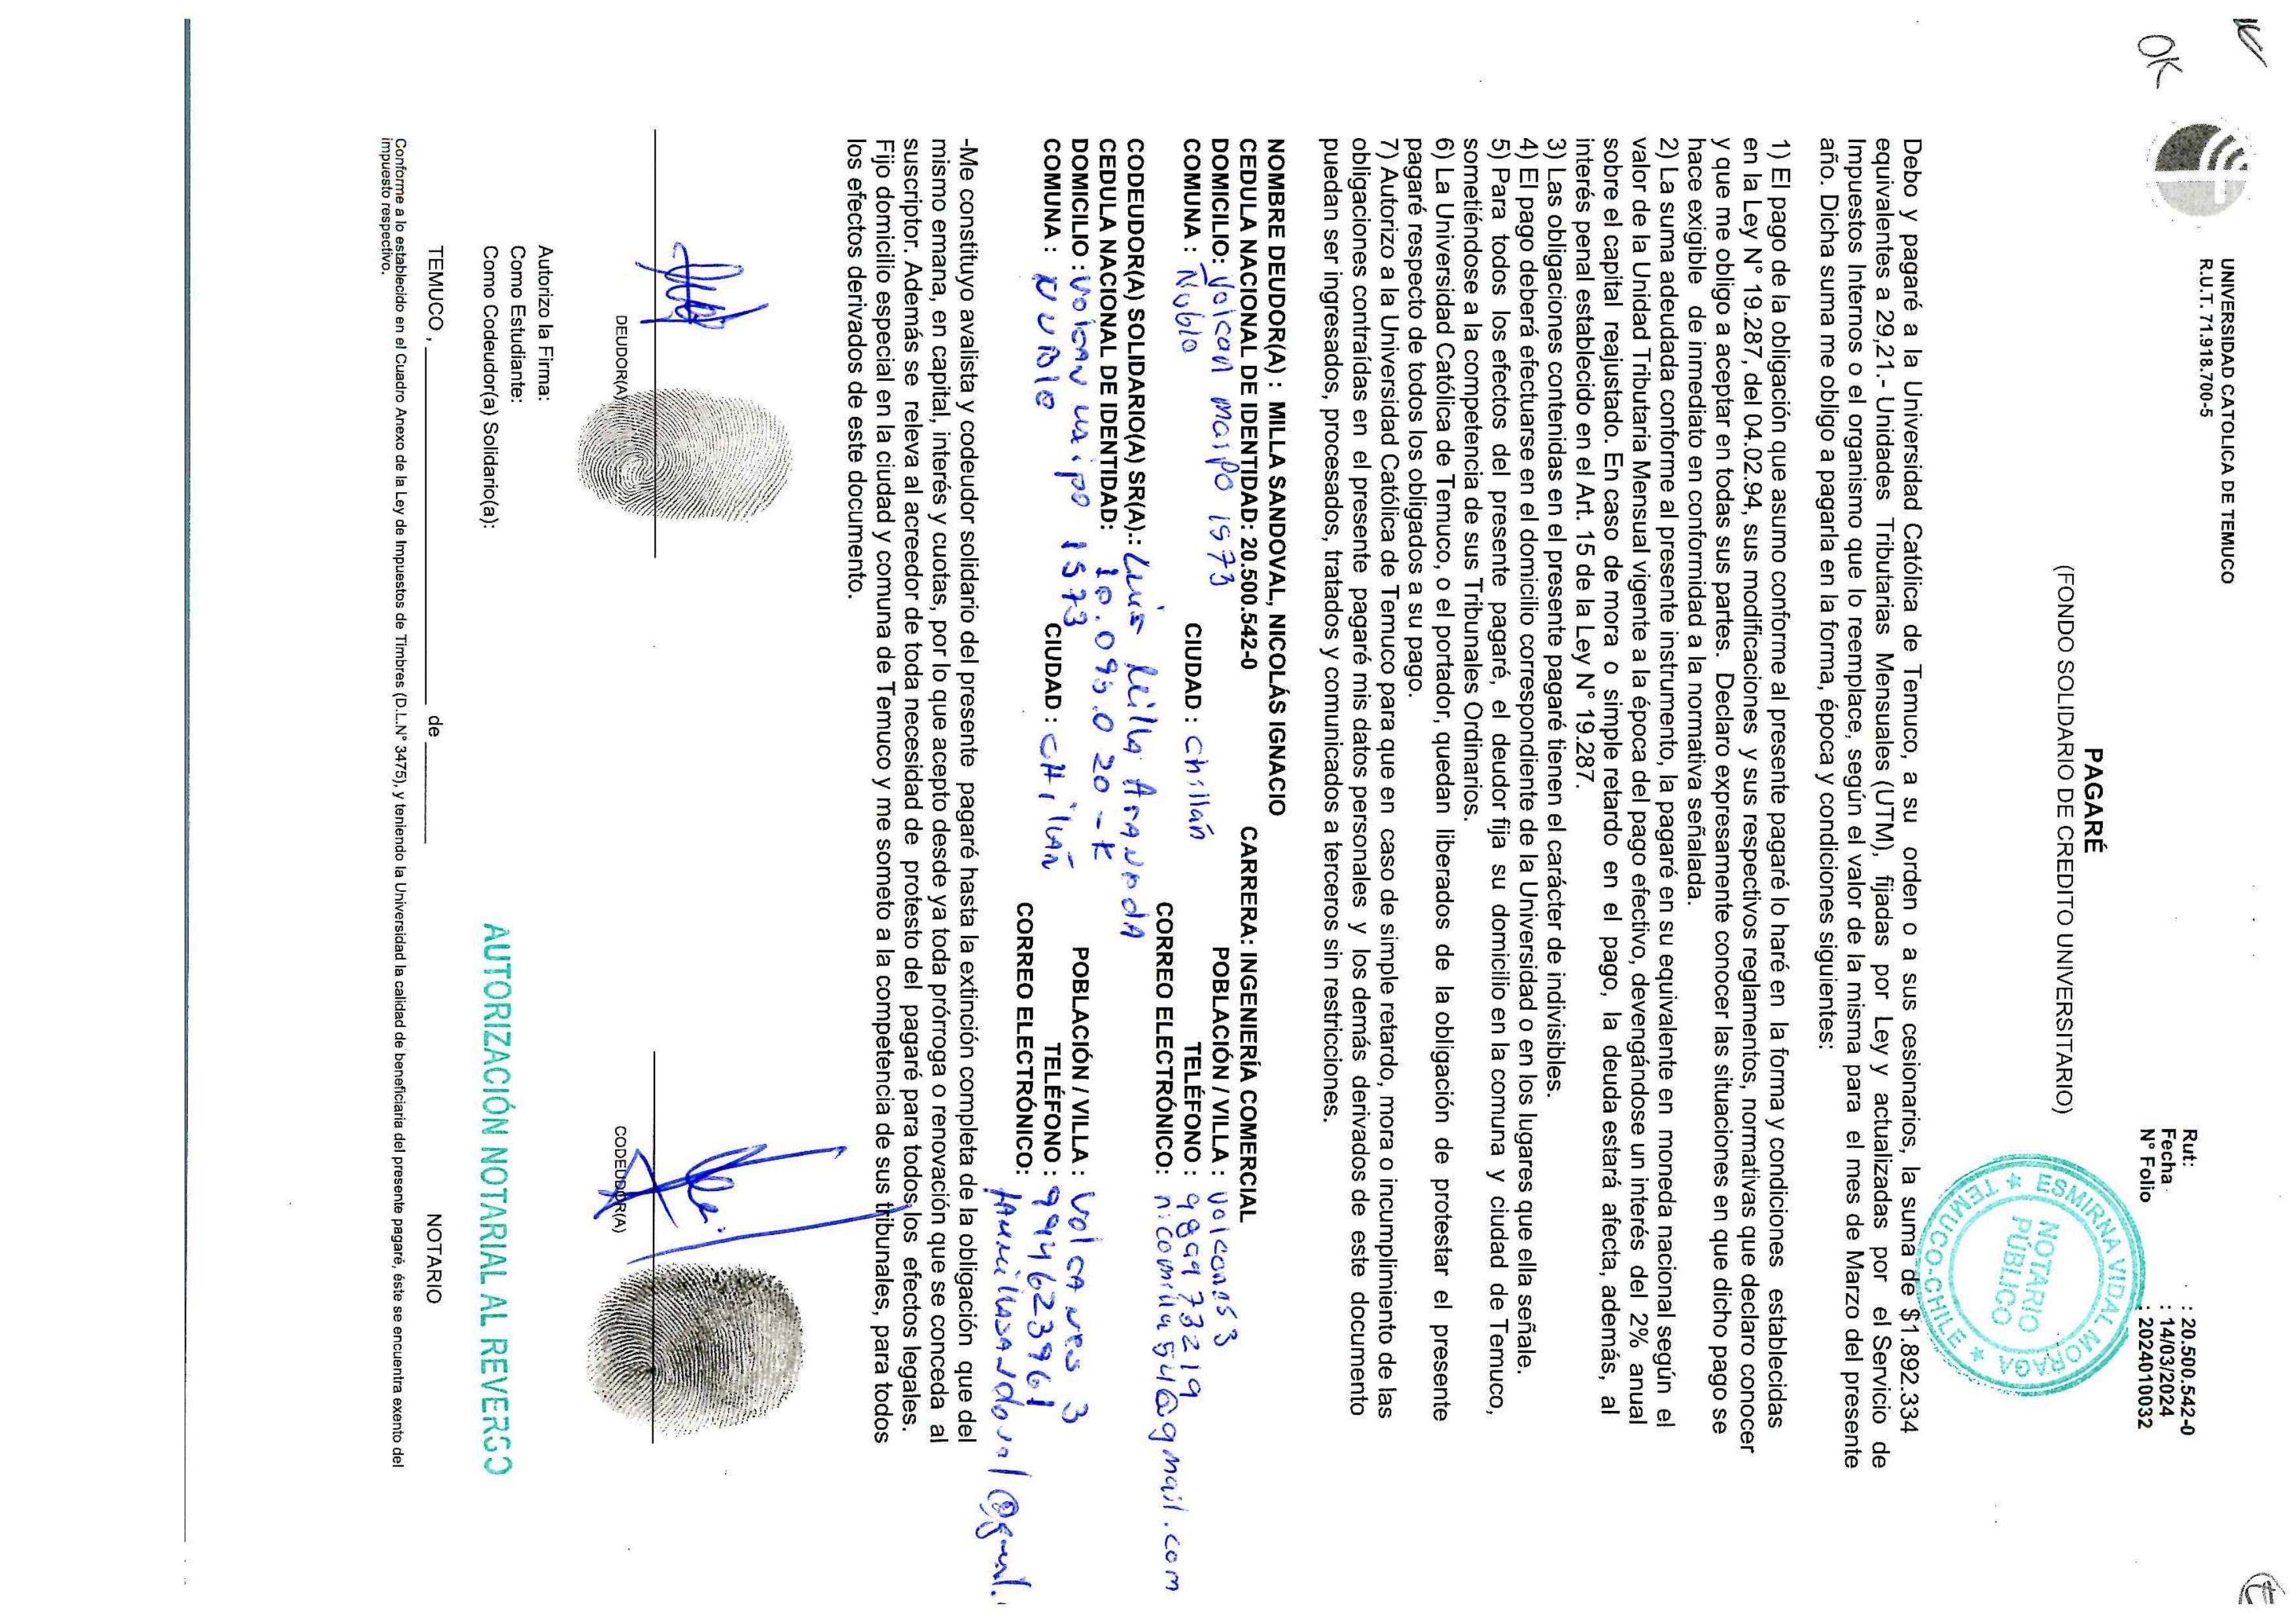 OK
UNIVERSIDAD CATOLICA DE TEMUCO
R.U.T. 71.918.700-5
Rut: : 20.500.542-0
Fecha : 14/03/2024
N° Folio : 2024010032
PAGARÉ
(FONDO SOLIDARIO DE CREDITO UNIVERSITARIO)
ESMIRNA VIDAL MORAGA
TEMUCO-CHILE
NOTARIO
PÚBLICO
Debo y pagaré a la Universidad Católica de Temuco, a su orden o a sus cesionarios, la suma de $1.892.334
equivalentes a 29,21.- Unidades Tributarias Mensuales (UTM), fijadas por Ley y actualizadas por el Servicio de
Impuestos Internos o el organismo que lo reemplace, según el valor de la misma para el mes de Marzo del presente
año. Dicha suma me obligo a pagarla en la forma, época y condiciones siguientes:
1) El pago de la obligación que asumo conforme al presente pagaré lo haré en la forma y condiciones establecidas
en la Ley N° 19.287, del 04.02.94, sus modificaciones y sus respectivos reglamentos, normativas que declaro conocer
y que me obligo a aceptar en todas sus partes. Declaro expresamente conocer las situaciones en que dicho pago se
hace exigible de inmediato en conformidad a la normativa señalada.
2) La suma adeudada conforme al presente instrumento, la pagaré en su equivalente en moneda nacional según el
valor de la Unidad Tributaria Mensual vigente a la época del pago efectivo, devengándose un interés del 2% anual
sobre el capital reajustado. En caso de mora o simple retardo en el pago, la deuda estará afecta, además, al
interés penal establecido en el Art. 15 de la Ley N° 19.287.
3) Las obligaciones contenidas en el presente pagaré tienen el carácter de indivisibles.
4) El pago deberá efectuarse en el domicilio correspondiente de la Universidad o en los lugares que ella señale.
5) Para todos los efectos del presente pagaré, el deudor fija su domicilio en la comuna y ciudad de Temuco,
sometiéndose a la competencia de sus Tribunales Ordinarios.
6) La Universidad Católica de Temuco, o el portador, quedan liberados de la obligación de protestar el presente
pagaré respecto de todos los obligados a su pago.
7) Autorizo a la Universidad Católica de Temuco para que en caso de simple retardo, mora o incumplimiento de las
obligaciones contraídas en el presente pagaré mis datos personales y los demás derivados de este documento
puedan ser ingresados, procesados, tratados y comunicados a terceros sin restricciones.
NOMBRE DEUDOR(A) : MILLA SANDOVAL, NICOLÁS IGNACIO
CEDULA NACIONAL DE IDENTIDAD: 20.500.542-0 CARRERA: INGENIERÍA COMERCIAL
DOMICILIO: Volcan maipo 1573 POBLACIÓN / VILLA : volcanes 3
COMUNA : Ñuble CIUDAD : chillán TELÉFONO : 989973219
CORREO ELECTRÓNICO: nicomilla54@gmail.com
CODEUDOR(A) SOLIDARIO(A) SR(A).: Luis Milla Aranda
CEDULA NACIONAL DE IDENTIDAD: 10.095.020-K
DOMICILIO : Volcan maipo 1573 POBLACIÓN / VILLA : Volcanes 3
COMUNA : CIUDAD : CHillán TELÉFONO : 994623961
CORREO ELECTRÓNICO:
-Me constituyo avalista y codeudor solidario del presente pagaré hasta la extinción completa de la obligación que del
mismo emana, en capital, interés y cuotas, por lo que acepto desde ya toda prórroga o renovación que se conceda al
suscriptor. Además se releva al acreedor de toda necesidad de protesto del pagaré para todos los efectos legales.
Fijo domicilio especial en la ciudad y comuna de Temuco y me someto a la competencia de sus tribunales, para todos
los efectos derivados de este documento.
DEUDOR(A) CODEUDOR(A)
Autorizo la Firma:
Como Estudiante:
Como Codeudor(a) Solidario(a):
AUTORIZACIÓN NOTARIAL AL REVERSO
TEMUCO , de NOTARIO
Conforme a lo establecido en el Cuadro Anexo de la Ley de Impuestos de Timbres (D.L.N° 3475), y teniendo la Universidad la calidad de beneficiaria del presente pagaré, éste se encuentra exento del
impuesto respectivo.